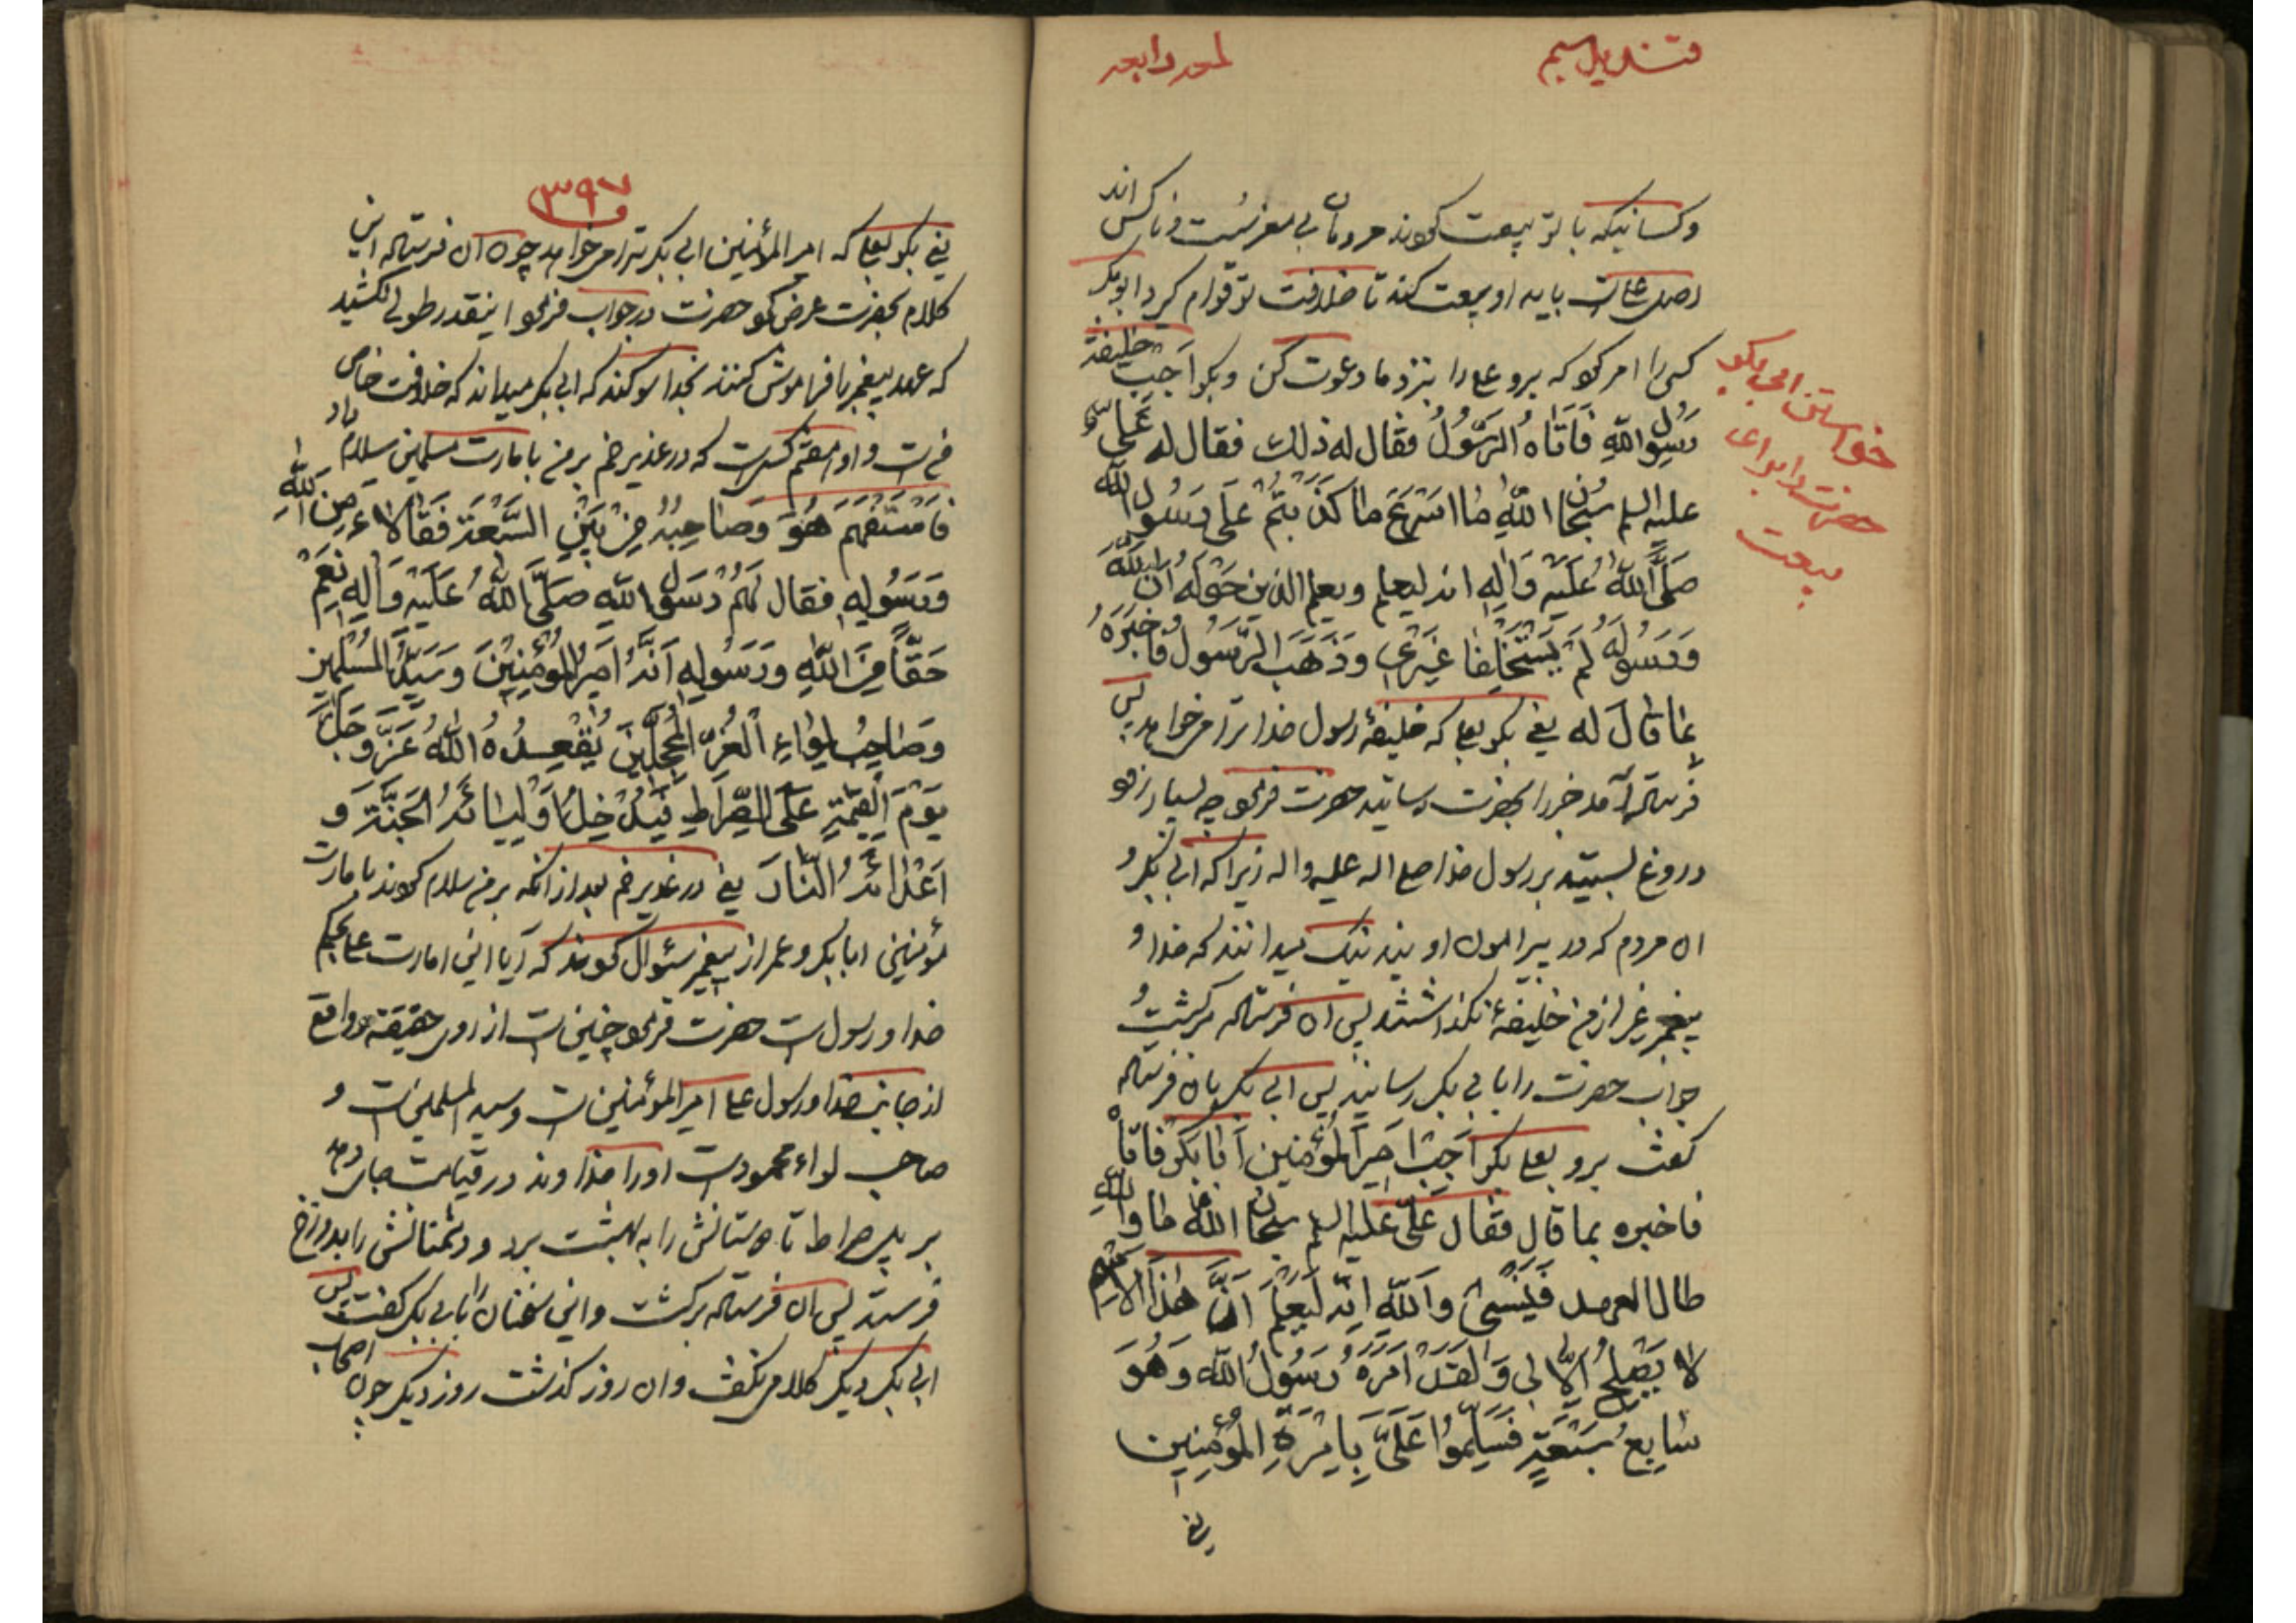 قندیل سیم
لمعه رابعه
وکسانیکه با تو بیعت کردند مردمان بی معرفت و ناکس اند
اصل علی است باید او بیعت کند تا خلافت تو قوام گیرد ابوبکر
کسی را امر کرد که برو علی را بنزد ما دعوت کن و بکو اَجِب خلیفة
رَسُولِ اللهِ فَاَتاهُ الرَّسُولُ فقال له ذلك فقال له عَلِیٌّ
علیه السلم سُبْحانَ اللهِ مٰا اَسْرَعَ ماٰ کَذَّبْتُمْ عَلیٰ رَسُولِ اللهِ
صَلَّی اللهُ عَلَیْهِ وَاٰلِهِ انه لیعلم ویعلم الذین حَوْلَهُ اَنَّ اللهَ
وَرَسُولَهُ لَمْ یَسْتَخْلِفا غَیْری وَذَهَبَ الرَّسُولُ فَاَخْبَرَهُ
بمٰا قٰالَ له یعنی بکو بعلی که خلیفهٔ رسول خدا ترا می خواهد پس
فرستاده آمد خبر را بحضرت رسانید حضرت فرمود چه بسیار زود
دروغ بستید بر رسول خدا صلی اله علیه واله زیرا که ابی بکر و
ان مردم که در پیرامون او یند نیک میدانند که خدا و
پیغمبر غیر از من خلیفهٔ نکذاشتند پس ان فرستاده برکشت و
جواب حضرت را بابی بکر رسانید پس ابی بکر بان فرستاده
کفت برو بعلی بکو اَجِبْ اَمیرَالمُؤْمِنین اَبٰا بَکْرٍ فَاَتٰاهُ
فاخبره بما قال فقال عَلِیٌّ عَلَیْهِ السلم سُبْحانَ اللهِ مٰا وَاللهِ
طال العهد فَیَنْسیٰ وَاللهِ اِنَّهُ لَیَعْلَمُ اَنَّ هٰذَا الاِسْمَ
لاٰ یَصْلَحُ اِلاّٰ لی وَلَقَدْ اَمَرَهُ رَسُولُ اللهِ وَهُوَ
سٰابِعُ سَبْعَةٍ فَسَلَّمُوا عَلَیَّ بِاِمْرَةِ المُؤْمِنینَ
یعنی
خواستن ابی بکر
حضرت را برای
بیعت
۳۹۷
یعنی بکو بعلی که امیر المؤمنین ابی بکر ترا می خواهد چون ان فرستاده این
کلام بحضرت عرض کرد حضرت در جواب فرمود اینقدر طولی نکشید
که عهد پیغمبر را فراموش کنند بخدا سوکند که ابی بکر میداند که خلافت خاص
من است و او هفتم کس است که در غدیر خم بر من بامارت مسلمین سلام داد
فَاسْتَفْهَمَ هُوَ وَصٰاحِبُهُ مِنْ بَیْنِ السَّبْعَةِ فَقٰالاٰ ءَمِنَ اللهِ
وَرَسُولِهِ فقال لَهُمْ رَسُولُ اللهِ صَلَّی اللهُ عَلَیْهِ وَاٰلِهِ نَعَمْ
حَقّاً مِنَ اللهِ وَرَسُولِهِ اَنَّهُ اَمیرُ المُؤْمِنینَ وَسَیِّدُ المُسْلِمینَ
وَصٰاحِبُ لِوٰاءِ الْغُرِّ المُحَجَّلینَ یُقْعِدُهُ اللهُ عَزَّ وَجَلَّ
یَوْمَ الْقِیٰمَةِ عَلَی الصِّرٰاطِ فَیُدْخِلُ اَوْلِیٰائَهُ الْجَنَّةَ وَ
اَعْدٰائَهُ النّٰارَ یعنی در غدیر خم بعد از انکه بر من سلام کردند بامارت
مؤمنین ابا بکر و عمر از پیغمبر سئوال کردند که آیا این امارت علی بحکم
خدا و رسول است حضرت فرمود چنین است از روی حقیقة و واقع
از جانب خدا و رسول علی امیر المؤمنین است و سید المسلمین است و
صاحب لواء محمود است او را خداوند در قیامت جای دهد
بر پل صراط تا دوستانش را به بهشت برد و دشمنانش را بدوزخ
فرستد پس ان فرستاده برکشت و این سخنان را بابی بکر کفت پس
ابی بکر دیکر کلامی نکفت و ان روز کذشت روز دیکر چون اصحاب